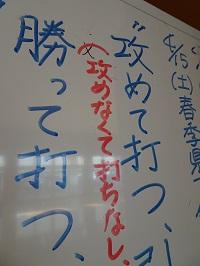 4/15(土)春季県
〝攻めて打つ、
(攻めなくて打ちなし、
勝って打つ、